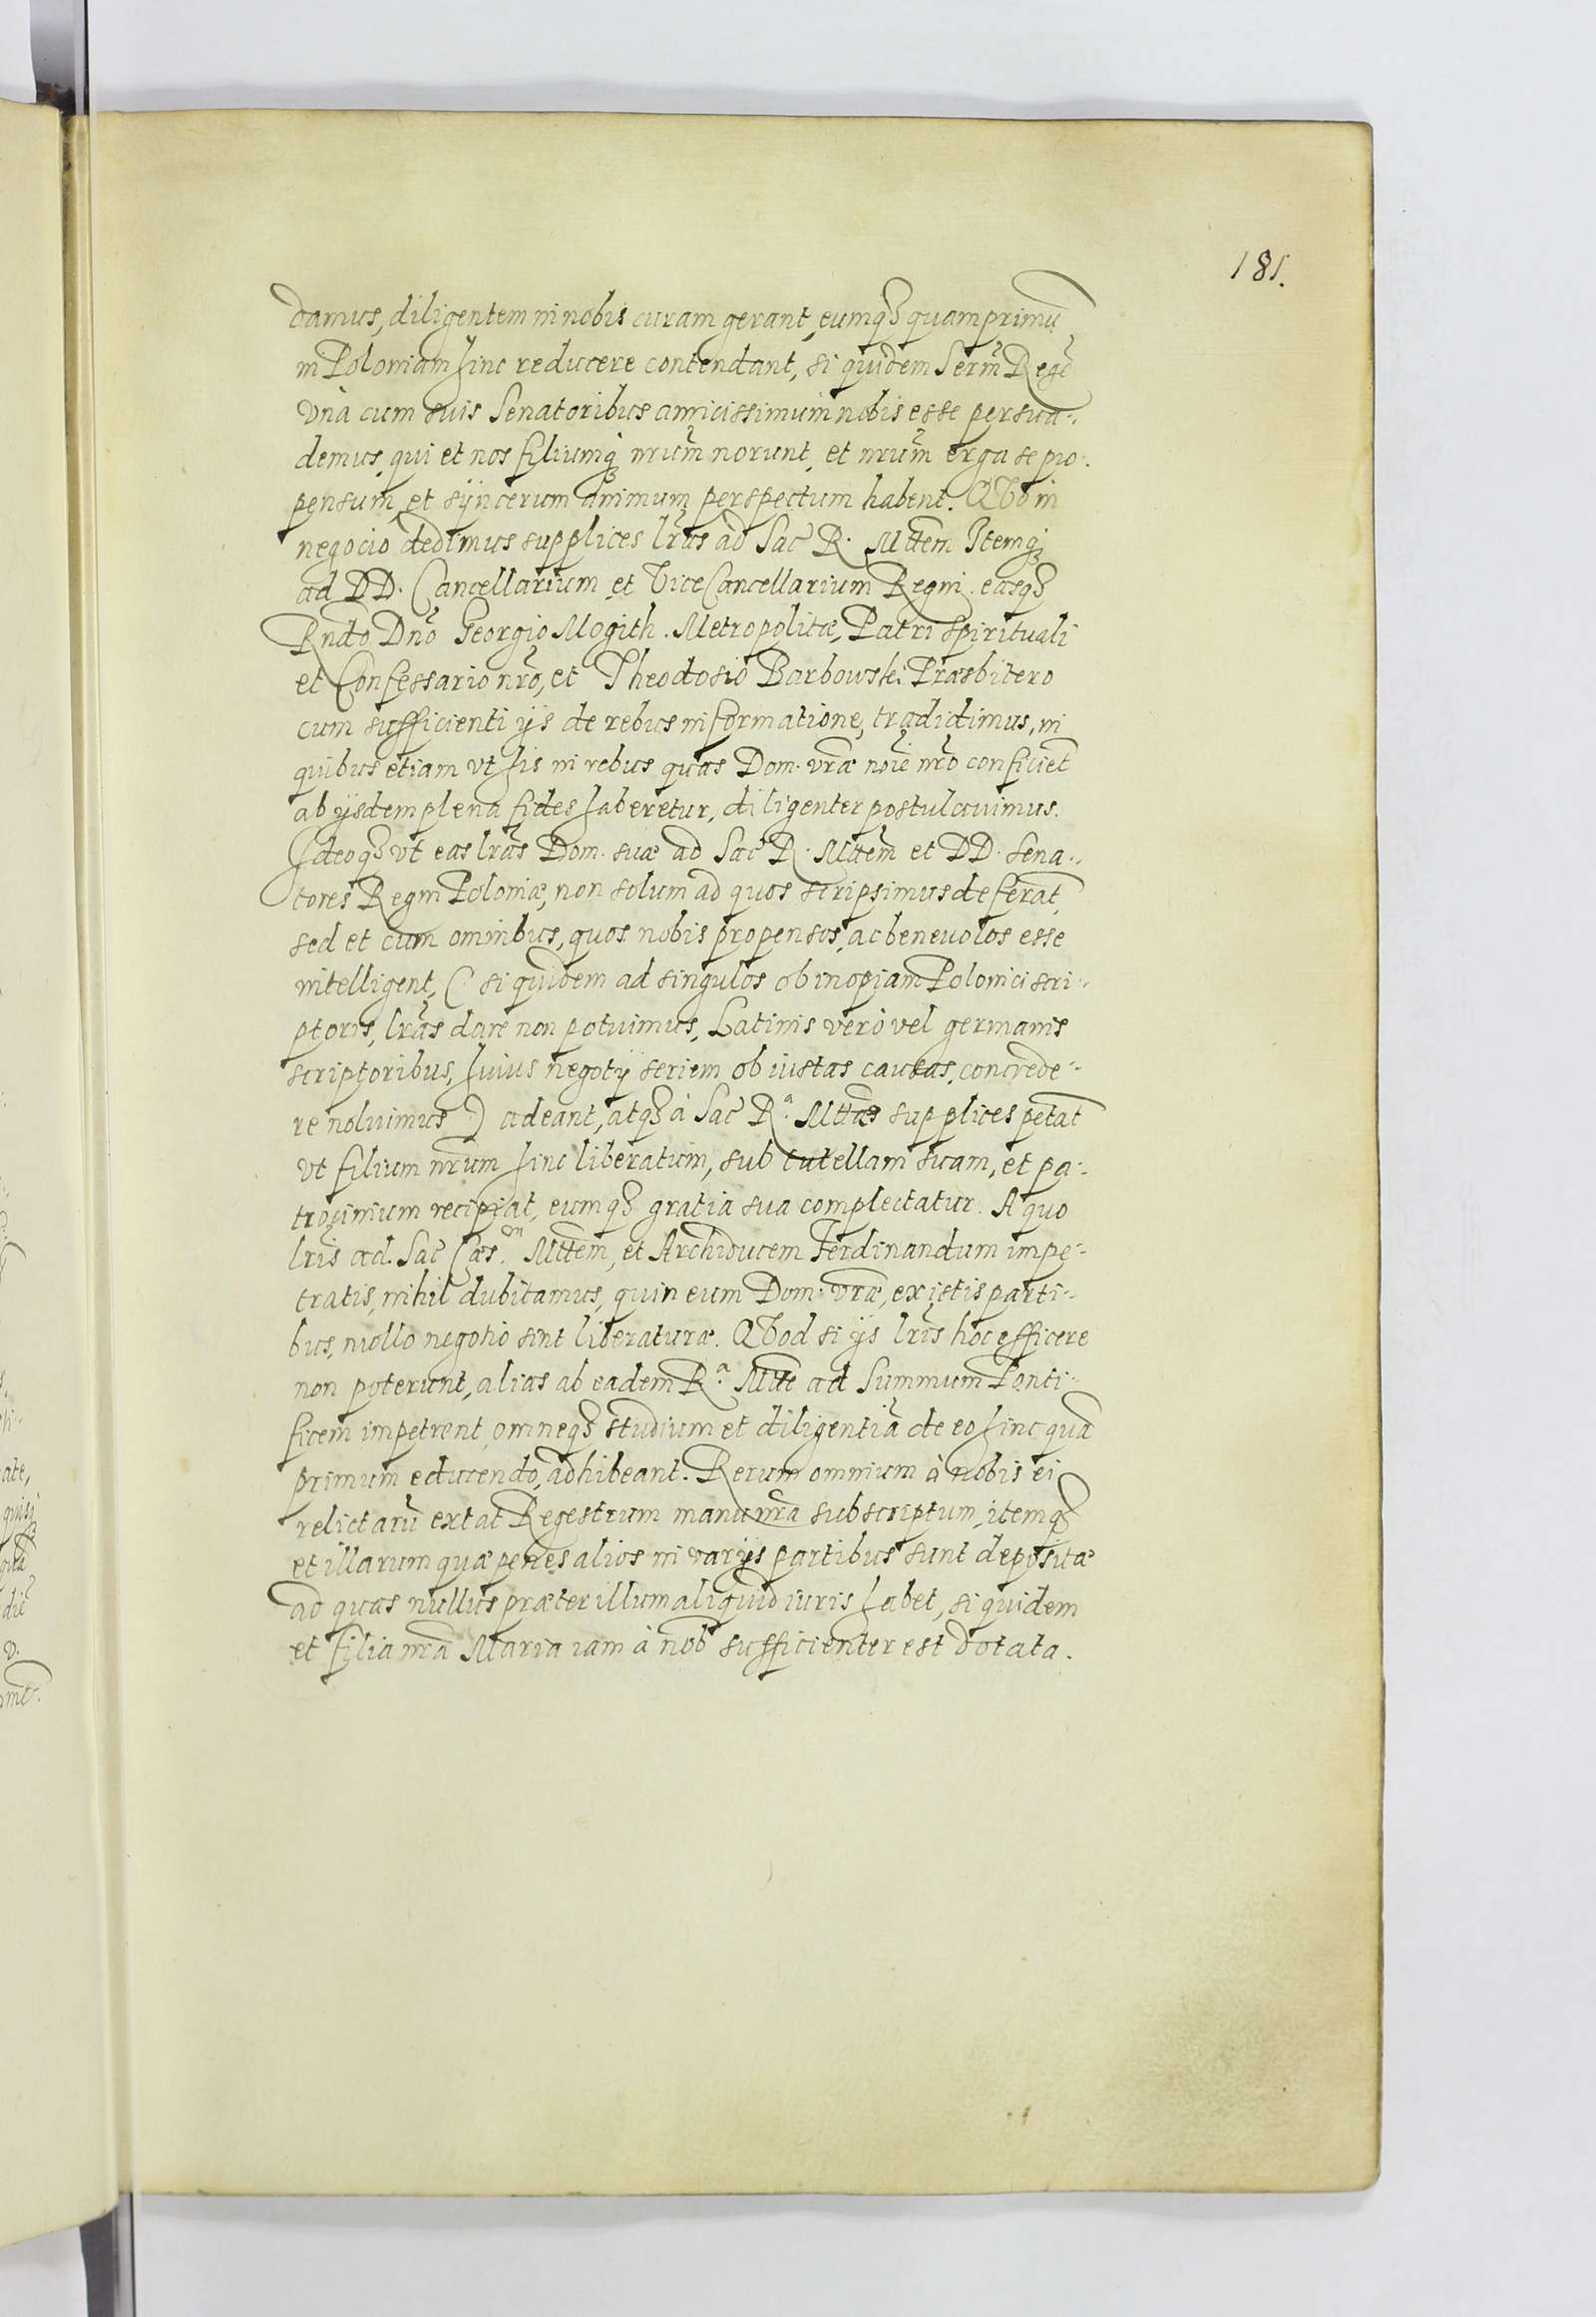 181.
damus, diligentem in nobis curam gerant, eumqꝫ quamprimũ
in Poloniam hinc reducere contendant, si quidem Serm̃ Regẽ
vnà cum suis Senatoribus amicissimum nobis esse persua-
demus, qui et nos filiumqꝫ nrũm norunt, et nrũm erga se pro-
pensum, et sÿncerum animum perspectum habent. QVo in
negocio dedimus supplices lrãs ad Sac̃ R. Mttẽm Itemqꝫ
ad DD. Cancellarium et ViceCancellarium Regni. easqꝫ
Rndõ Dnõ Georgio Mogith. Metropolitæ, Patri spirituali
et Confessario nrõ, et Theodosio Barbowski Præsbitero
cum sufficienti ijs de rebus informatione, tradidimus, in
quibus etiam vt his in rebus quas Dom. vrãæ noĩe nrõ conficiẽt
ab ijsdem plena fides haberetur, diligenter postulauimus.
Ideoqꝫ vt eas lrãs Dom. suæ ad Sac̃ R. Mttẽm et DD. Sena-
tores Regni Poloniæ, non solum ad quos scripsimus deferãt,
sed et cum omnibus, quos nobis propensos, ac beneuolos esse
intelligent, (si quidem ad singulos ob inopiam Polonici scri-
ptoris, lrãs dare non potuimus, Latinis verò vel germanis
scriptoribus, huius negotÿ seriem ob iustas causas, concrede-
re noluimus) adeant, atqꝫ à Sac̃ Rᵃ. Mttẽ supplices petãt
vt filium nrũm hinc liberatum, sub tutellam suam, et pa-
trocinium recipiat, eumqꝫ gratia sua complectatur. A quo
lrĩs ad. Sac̃ Cæs.ᵃᵐ Mttẽm, et Archiducem Ferdinandum impe-
tratis, nihil dubitamus, quin eum Dom. vrãæ, ex istis parti-
bus, nullo negotio sint liberaturæ. QVod si ijs lrĩs hoc efficere
non poterunt, alias ab eadem Rᵃ. Mttẽ ad Summum Ponti-
ficem impetrent, omneqꝫ studium et diligentiã de eo hinc quã
primum educendo, adhibeant. Rerum omnium à nobis ei
relictarũ extat Regestrum manu nrã subscriptum, itemqꝫ
et illarum quæ penes alios in varijs partibus sunt depositæ
ad quas nullus præter illum aliquid iuris habet, si quidem
et filia nrã Maria iam à nob̃ sufficienter est dotata.